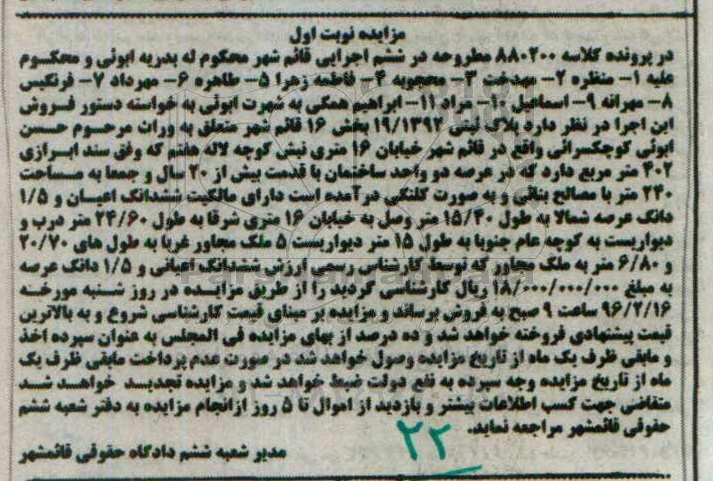 مزایده نوبت اول
در پرونده کلاسه ۸۸۰۲۰۰ مطروحه در ششم اجرایی قائم شهر محکوم له بدریه ابوئی و محکوم
علیه ۱- منظره ۲- مهدخت ۳- محجوبه ۴- فاطمه زهرا ۵- طاهره ۶- مهرداد ۷- فرنگیس
۸- مهرانه ۹- اسماعیل ۱۰- مراد ۱۱- ابراهیم همگی به شهرت ابوئی به خواسته دستور فروش
این اجرا در نظر دارد پلاک ثبتی ۱۹/۱۳۹۲ بخش ۱۶ قائم شهر متعلق به وراث مرحوم حسن
ابوئی کوچکسرائی واقع در قائم شهر خیابان ۱۶ متری نبش کوچه لاله هفتم که وفق سند ابرازی
۴۰۲ متر مربع دارد که در عرصه دو واحد ساختمان با قدمت بیش از ۲۰ سال و جمعا به مساحت
۲۴۰ متر با مصالح بنائی و به صورت کلنگی درآمده است دارای مالکیت ششدانگ اعیان و ۱/۵
دانگ عرصه شمالا به طول ۱۵/۴۰ متر وصل به خیابان ۱۶ متری شرقا به طول ۲۴/۶۰ متر درب و
دیواریست به کوچه عام جنوبا به طول ۱۵ متر دیواریست ۵ ملک مجاور غربا به طول های ۲۰/۷۰
و ۶/۸۰ متر به ملک مجاور که توسط کارشناس رسمی ارزش ششدانگ اعیانی و ۱/۵ دانگ عرصه
به مبلغ ۱۸/۰۰۰/۰۰۰/۰۰۰ ریال کارشناسی گردید را از طریق مزایده در روز شنبه مورخه
۹۶/۲/۱۶ ساعت ۹ صبح به فروش برساند و مزایده بر مبنای قیمت کارشناسی شروع و به بالاترین
قیمت پیشنهادی فروخته خواهد شد و ده درصد از بهای مزایده فی المجلس به عنوان سپرده اخذ
و مابقی ظرف یک ماه از تاریخ مزایده وصول خواهد شد در صورت عدم پرداخت مابقی ظرف یک
ماه از تاریخ مزایده وجه سپرده به نفع دولت ضبط خواهد شد و مزایده تجدید خواهد شد
متقاضی جهت کسب اطلاعات بیشتر و بازدید از اموال تا ۵ روز ازانجام مزایده به دفتر شعبه ششم
حقوقی قائمشهر مراجعه نماید.
۲۲
مدیر شعبه ششم دادگاه حقوقی قائمشهر